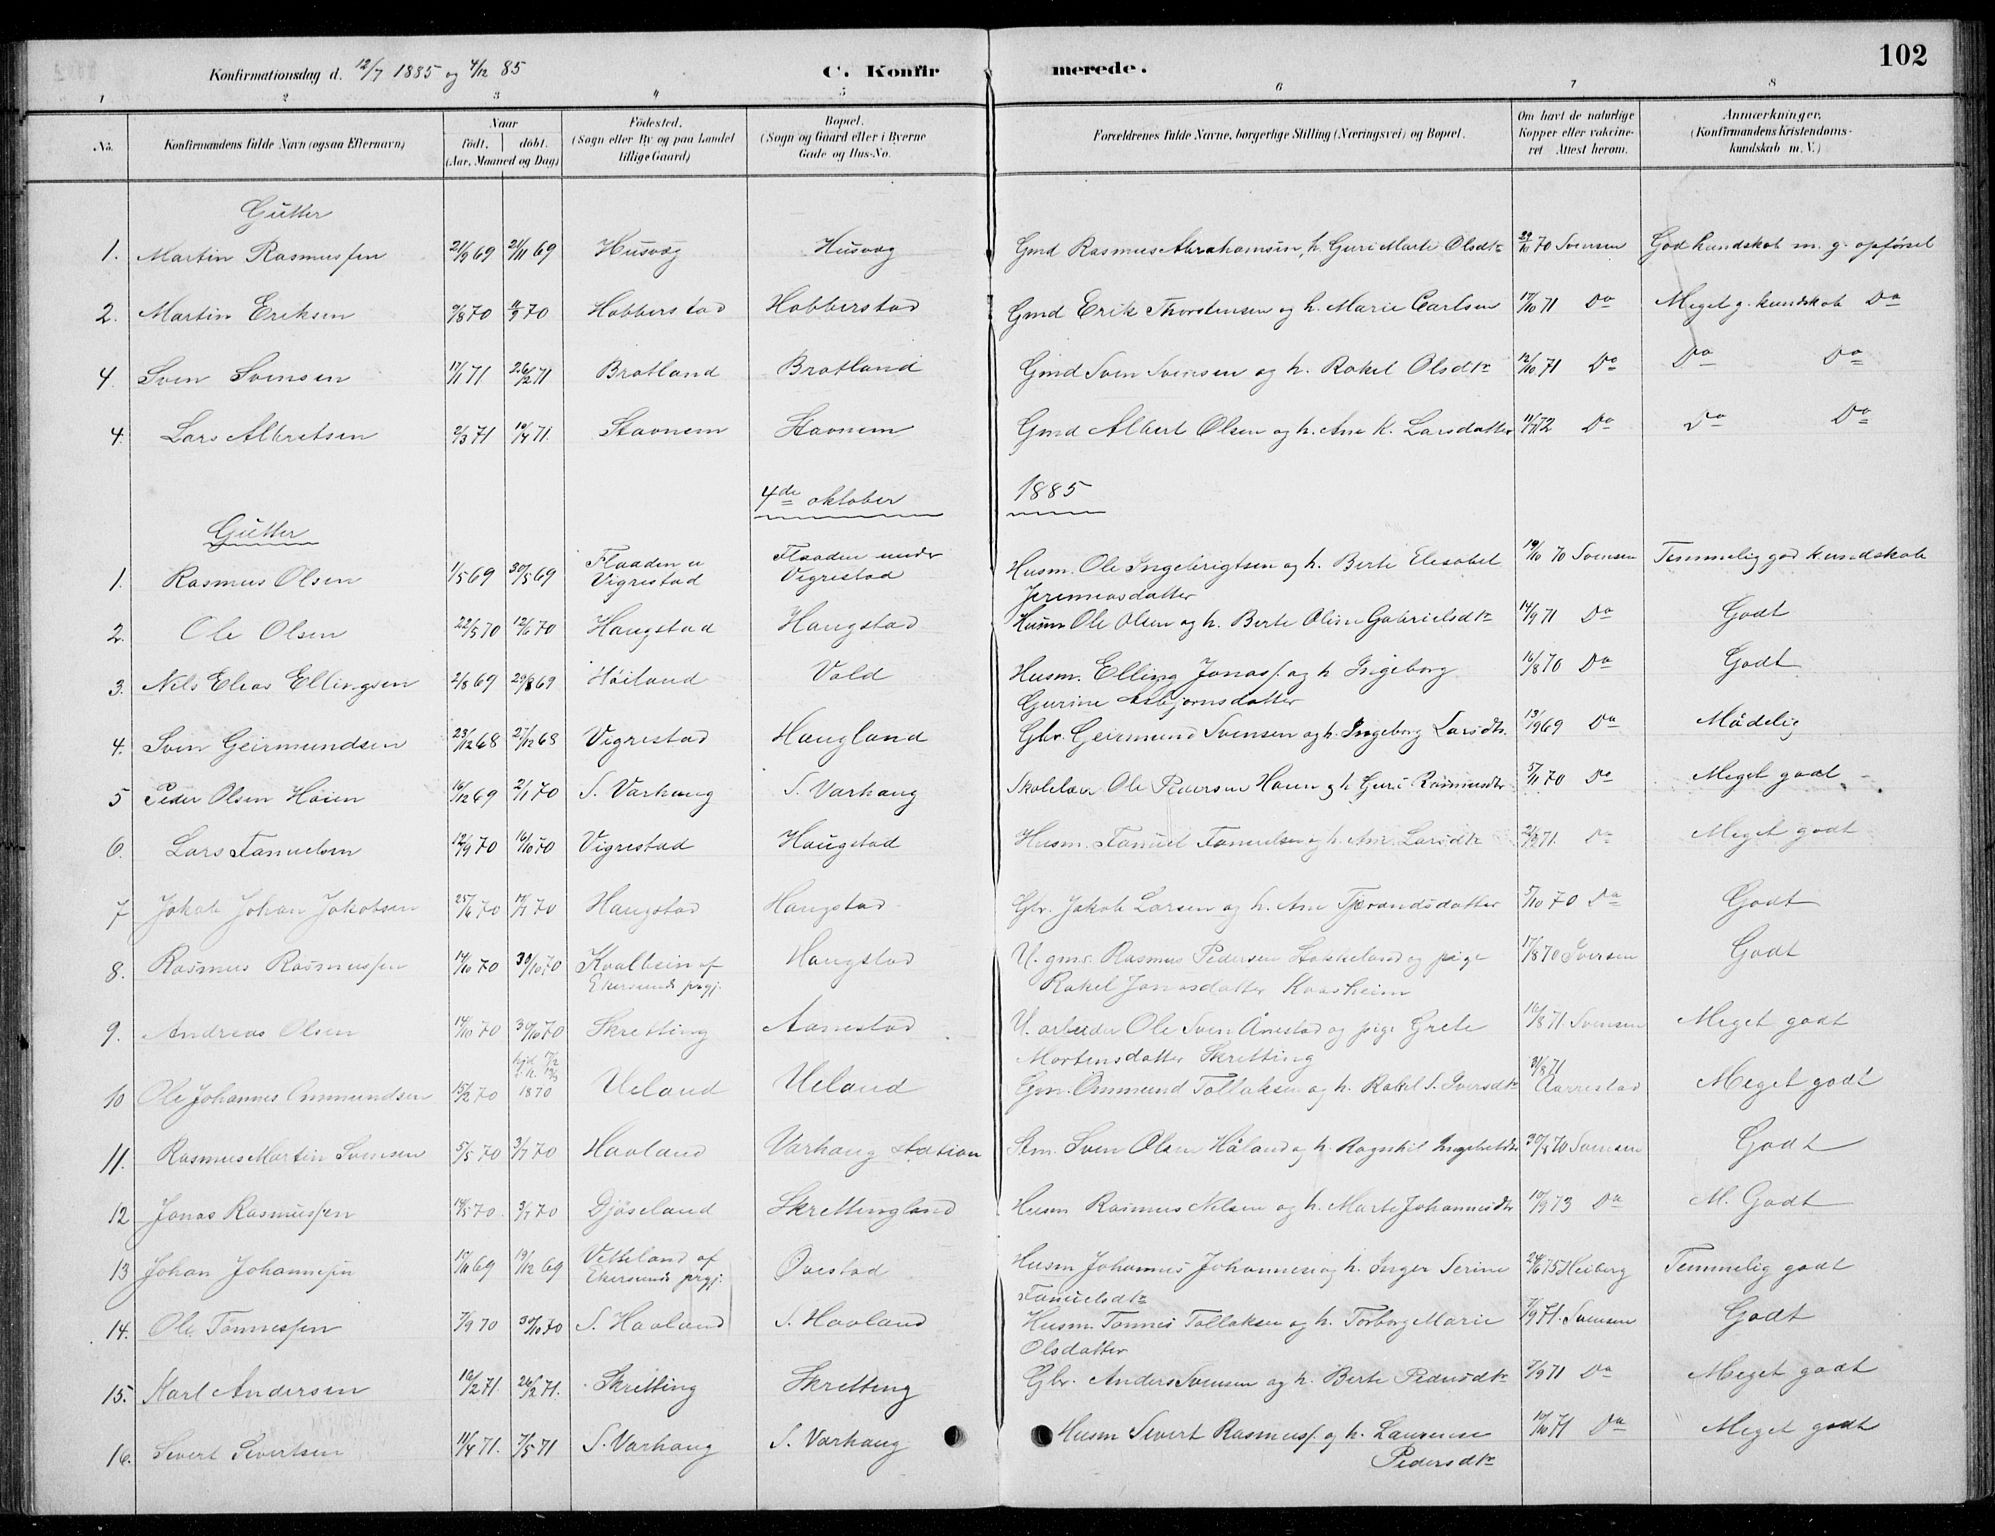 102
Konfirmationsdag d. 12/7 1885 og 4/12 85 C. Konfirmerede.
1 2 3 4 5 6 7 8
No. Konfirmandens fulde Navn (ogsaa Efternavn) Naar født. døbt. (Aar, Maaned og Dag) Fødested. (Sogn eller By og paa Landet tillige Gaard) Bopæl. (Sogn og Gaard eller i Byerne Gade og Hus-No. Forældrenes fulde Navne, borgerlige Stilling (Næringsvei) og Bopæl. Om havt de naturlige Kopper eller vaccineret Attest herom. Anmærkninger. (Konfirmandens Kristendomskundskab m. V.)
Gutter
1. Martin Rasmussen 21/9 69 21/11 69 Husvæg Husvæg Gmd Rasmus Abrahamsen, h. Guri Marte Olsdtr 70 Svensen God kundskab m. g. opførsel
2. Martin Eriksen 9/8 70 11/9 70 Hobberstad Hobberstad Gmd Erik Thorstensen og h. Marie Carlsen 17/10 71 Do Meget g. kundskab Do
4. Sven Svensen 17/1 71 26/2 71 Bratland Bratland Gmd Sven Svensen og h. Rakel Olsdtr 12/10 71 Do Do Do
4. Lars Albretsen 2/3 71 10/4 71. Stavnem Stavnem Gmd Albert Olsen og h. Ane K. Larsdatter 72 Do Do Do
4de oktober 1885
Gutter
1. Rasmus Olsen 1/5 69 30/5 69 Flaaden u Vigrestad Flaaden under Vigrestad Husm. Ole Ingebrigtsen og h. Berte Elesabet Jeremeasdatter 19/10 70 Svensen Temmelig god kundskab
2. Ole Olsen 22/5 70 12/6 70 Haugstad Haugstad Husm Ole Olsen og h. Berte Oline Gabrielsdtr 14/9 71 Do Godt
3. Nils Elias Ellingsen 2/8 69 29/8 69 Høiland Vold Husm. Elling Jonass. og h Ingeborg Gurine Asbjørnsdatter 16/8 70 Do Godt
4. Sven Geirmundsen 23/12 68 27/12 68 Vigrestad Haugland Gbr. Geirmund Svensen og h. Ingeborg Larsdtr. 13/9 69 Do Mådelig
5 Peder Olsen Høien 16/12 69 2/1 70 S. Varhaug S. Varhaug Skolelær Ole Pedersen Høien og h Guri Rasmusdtr 5/11 70 Do Meget godt
6. Lars Tanuelsen 12/9 70 16/10 70 Vigrestad Haugstad Husm. Tanuel Tanuelsen og h. Ane Larsdtr 21/9 71. Do Meget godt
7 Jakob Johan Jakobsen 25/6 70 17/7 70 Haugstad Haugstad Gbr. Jakob Larsen og h. Ane Tjerandsdatter 5/10 70 Do Godt
8. Rasmus Rasmussen 14/10 70 30/10 70 Kvalbein af Ekersunds prgj. Haugstad U. gmd. Rasmus Pedersen Stokkeland og pige Rakel Jonasdatter Kaasheim 17/8 70 Svensen Godt
9. Andreas Olsen 14/10 70 30/10 70 Skretting Aanestad U. arbeider Ole Sven Ånestad og pige Grete Mortensdatter Skretting 16/8 71 Svensen Meget godt
10 Ole Johannes Ommundsen 15/2 70 1870 Ueland Ueland Gm. Ommund Tollaksen og h. Rakel S. Iversdtr 31/8 71 Aarrestad Meget godt
11. Rasmus Martin Svensen 5/5 70 3/7 70 Haaland Varhaug Station Stm. Sven Olsen Håland og h. Ragnhil Ingebretsdtr 30/8 70 Svensen Godt
12 Jonas Rasmussen 14/5 70 3/7 70 Djøseland Skrettingland Husm Rasmus Nilsen og h. Marte Johannesdtr 10/9 73 Do M. Godt
13 Johan Johannesen 17/11 69 19/12 69 Vetteland af Ekersunds prgj. Ovestad Husm Johannes Johannesen og h. Inger Serine Tanuelsdtr 24/6 75 Heiberg Temmelig godt
14. Ole Tønnessen 7/9 70 30/10 70 S. Haaland S. Haaland Husm. Tønnes Tollaksen og h. Torborg Marie Olsdatter 7/9 71. Svensen Godt
15. Karl Andersen 16/2 71. 26/2 71. Skretting Skretting Gbr. Anders Svensen og h. Berte Pedersdtr 7/9 71 Do Meget godt
16. Sivert Sivertsen 11/4 71. 7/5 71 S. Varhaug S. Varhaug Husm Sivert Rasmuss. og h. Laurense Pedersdtr 10/10 71 Do Meget godt